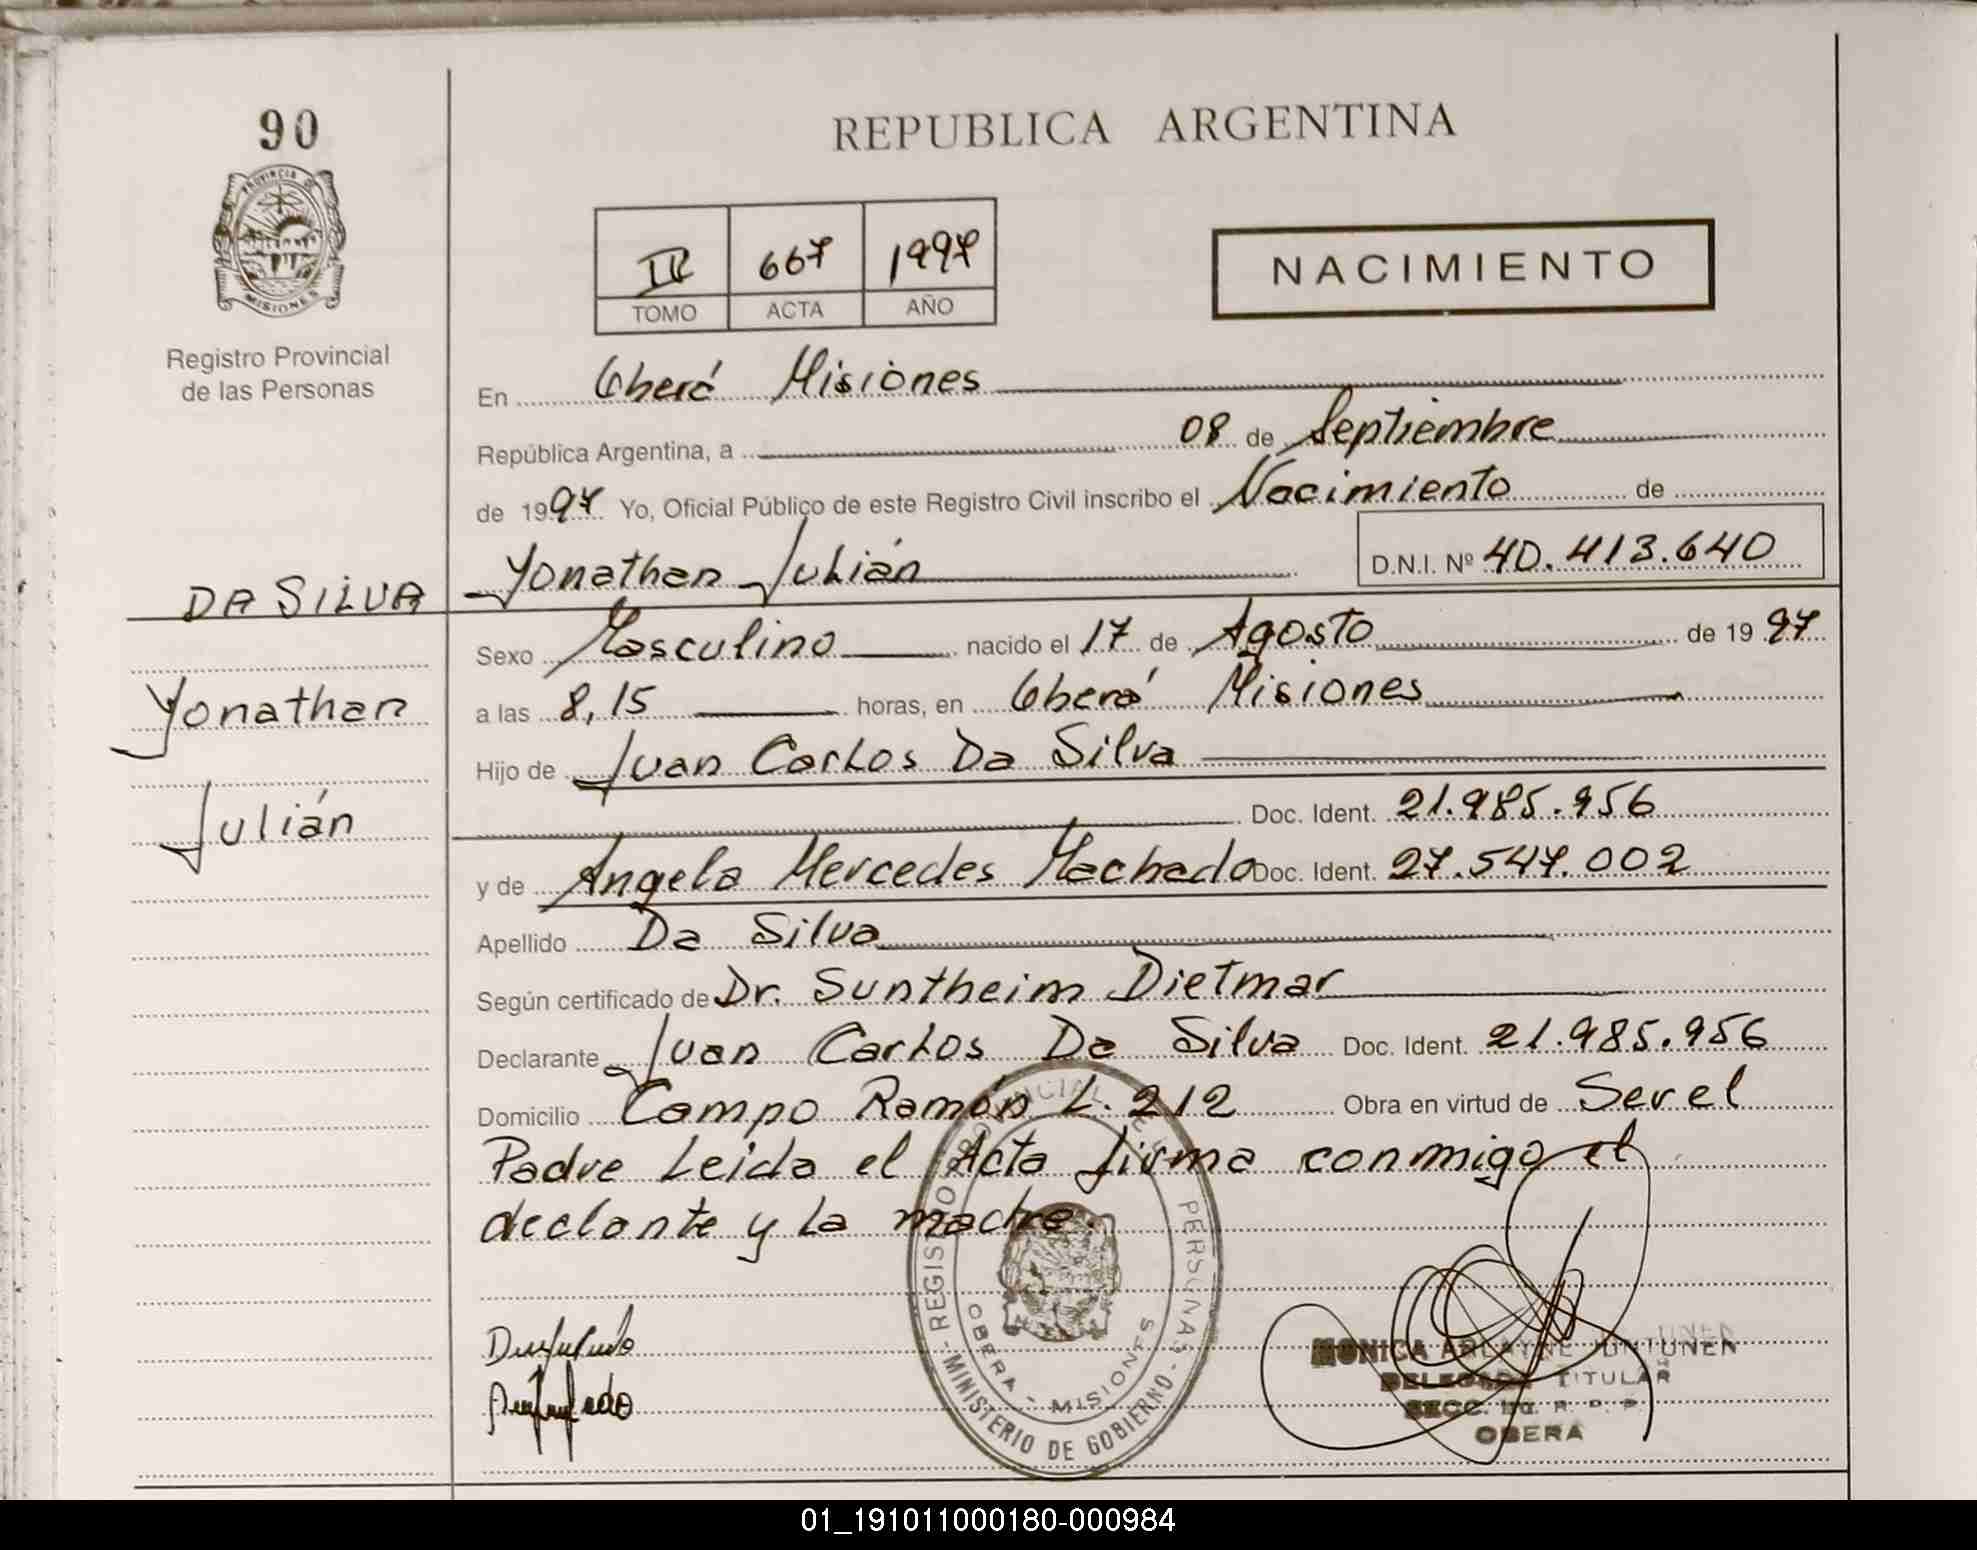 90
REPUBLICA ARGENTINA
PROVINCIA DE
MISIONES
II 667 1997
TOMO ACTA AÑO
NACIMIENTO
Registro Provincial
de las Personas
En Oberá Misiones
República Argentina, a 08 de Septiembre
de 1997 Yo, Oficial Público de este Registro Civil inscribo el Nacimiento de
Yonathan Julián D.N.I. Nº 40.413.640
DA SILVA
Sexo Masculino nacido el 17 de Agosto de 1997
Yonathan
a las 8,15 horas, en Oberá Misiones
Hijo de Juan Carlos Da Silva
Julián
Doc. Ident. 21.985.956
y de Angela Mercedes Machado Doc. Ident. 27.547.002
Apellido Da Silva
Según certificado de Dr. Suntheim Dietmar
Declarante Juan Carlos Da Silva Doc. Ident. 21.985.956
Domicilio Campo Ramón L. 212 Obra en virtud de Ser el
Padre Leida el Acta firma conmigo el
declante y la madre.
REGISTRO PROVINCIAL DE PERSONAS
OBERA - MISIONES
-MINISTERIO DE GOBIERNO-
MONICA
DELEGADA TITULAR
SECC. 1ra. R. P. P.
OBERA
01_191011000180-000984